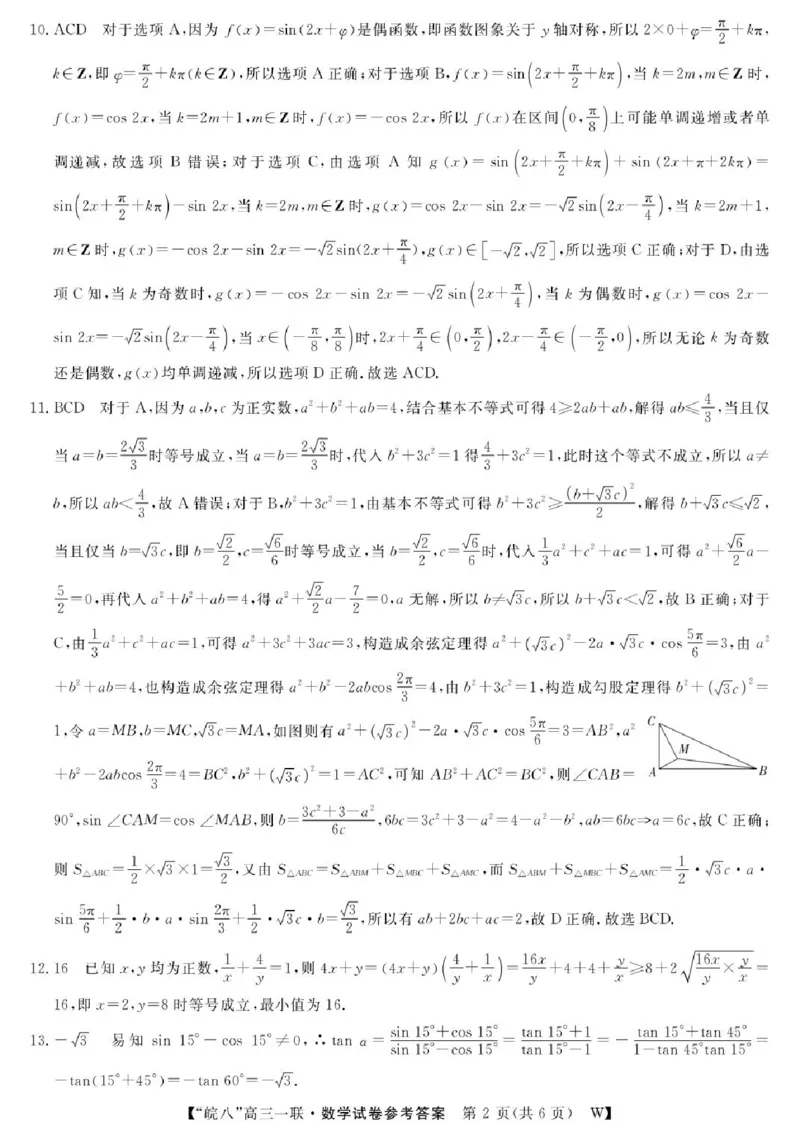 10. ACD 对于选项 A,因为 f(x)=sin(2x+φ)是偶函数,即函数图象关于 y 轴对称,所以 2×0+φ=π/2+kπ,
k∈Z,即 φ=π/2+kπ(k∈Z),所以选项 A 正确;对于选项 B,f(x)=sin(2x+π/2+kπ),当 k=2m,m∈Z 时,
f(x)=cos 2x,当 k=2m+1,m∈Z 时,f(x)=-cos 2x,所以 f(x)在区间(0,π/8)上可能单调递增或者单
调递减,故选项 B 错误;对于选项 C,由选项 A 知 g(x)=sin(2x+π/2+kπ)+sin(2x+π+2kπ)=
sin(2x+π/2+kπ)-sin 2x,当 k=2m,m∈Z 时,g(x)=cos 2x-sin 2x=-√2sin(2x-π/4),当 k=2m+1,
m∈Z 时,g(x)=-cos 2x-sin 2x=-√2sin(2x+π/4),g(x)∈[-√2,√2],所以选项 C 正确;对于 D,由选
项 C 知,当 k 为奇数时,g(x)=-cos 2x-sin 2x=-√2 sin(2x+π/4),当 k 为偶数时,g(x)=cos 2x-
sin 2x=-√2sin(2x-π/4),当 x∈(-π/8,π/8)时,2x+π/4∈(0,π/2),2x-π/4∈(-π/2,0),所以无论 k 为奇数
还是偶数,g(x)均单调递减,所以选项 D 正确.故选 ACD.
11. BCD 对于 A,因为 a,b,c 为正实数,a²+b²+ab=4,结合基本不等式可得 4≥2ab+ab,解得 ab≤4/3,当且仅
当 a=b=2√3/3时等号成立,当 a=b=2√3/3时,代入 b²+3c²=1 得4/3+3c²=1,此时这个等式不成立,所以 a≠
b,所以 ab<4/3,故 A 错误;对于 B,b²+3c²=1,由基本不等式可得 b²+3c²≥(b+√3c)²/2,解得 b+√3c≤√2,
当且仅当 b=√3c,即 b=√2/2,c=√6/6时等号成立,当 b=√2/2,c=√6/6时,代入1/3a²+c²+ac=1,可得 a²+√6/2a-
5/2=0,再代入 a²+b²+ab=4,得 a²+√2/2a-7/2=0,a 无解,所以 b≠√3c,所以 b+√3c<√2,故 B 正确;对于
C,由1/3a²+c²+ac=1,可得 a²+3c²+3ac=3,构造成余弦定理得 a²+(√3c)²-2a·√3c·cos 5π/6=3,由 a²
+b²+ab=4,也构造成余弦定理得 a²+b²-2abcos 2π/3=4,由 b²+3c²=1,构造成勾股定理得 b²+(√3c)²=
1,令 a=MB,b=MC,√3c=MA,如图则有 a²+(√3c)²-2a·√3c·cos 5π/6=3=AB²,a²
+b²-2abcos 2π/3=4=BC²,b²+(√3c)²=1=AC²,可知 AB²+AC²=BC²,则∠CAB=
C
M
A
B
90°,sin ∠CAM=cos ∠MAB,则 b=3c²+3-a²/6c,6bc=3c²+3-a²=4-a²-b²,ab=6bc⇒a=6c,故 C 正确;
则 S△ABC=1/2×√3×1=√3/2,又由 S△ABC=S△ABM+S△MBC+S△AMC,而 S△ABM+S△MBC+S△AMC=1/2·√3c·a·
sin 5π/6+1/2·b·a·sin 2π/3+1/2·√3c·b=√3/2,所以有 ab+2bc+ac=2,故 D 正确.故选 BCD.
12. 16 已知 x,y 均为正数,1/x+4/y=1,则 4x+y=(4x+y)(4/y+1/x)=16x/y+4+4+y/x≥8+2√(16x/y×y/x)=
16,即 x=2,y=8 时等号成立,最小值为 16.
13. -√3 易知 sin 15°-cos 15°≠0,∴tan α=sin 15°+cos 15°/sin 15°-cos 15°=tan 15°+1/tan 15°-1=-tan 15°+tan 45°/1-tan 45°tan 15°=
-tan(15°+45°)=-tan 60°=-√3.
【“皖八”高三一联·数学试卷参考答案 第 2 页(共 6 页) W】